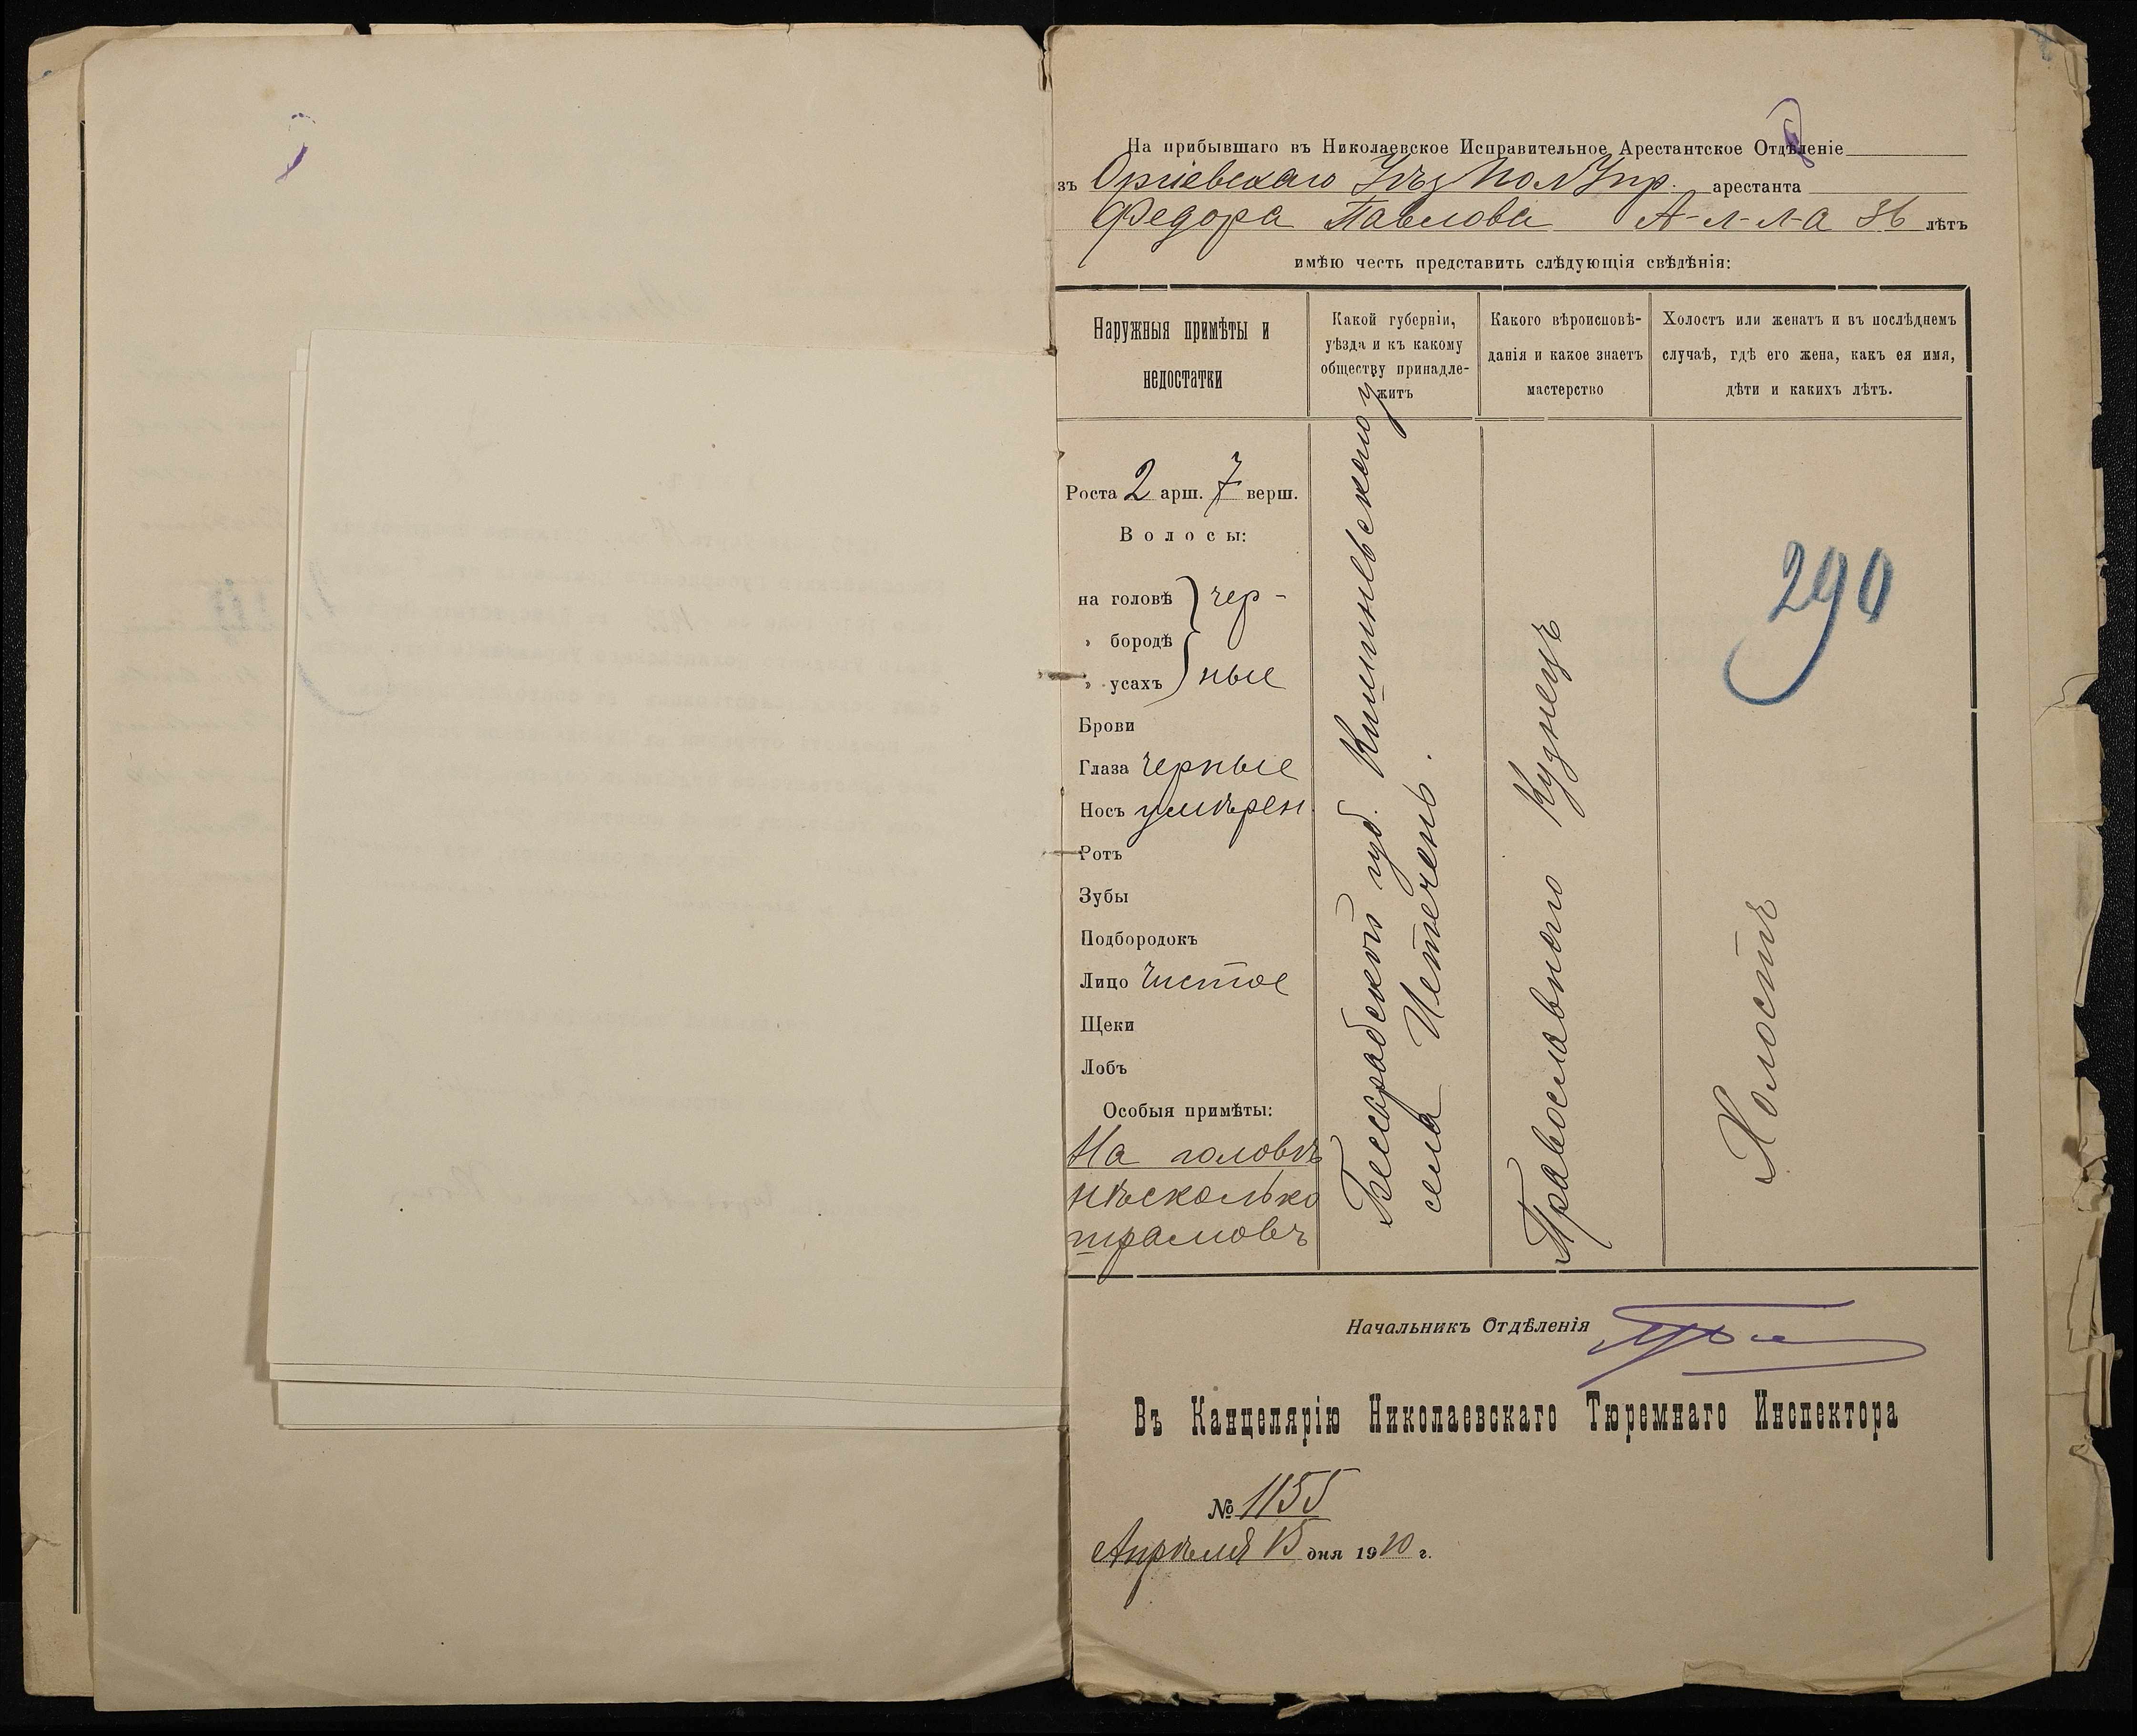 На прибывшаго въ Николаевское Исправительное Арестантское Отдѣленіе
зъ Оргіевскаго Уѣзд Пол Упр. арестанта
Федора Павлова А-л-л-а 36 лѣтъ
имѣю честь представить слѣдующія свѣдѣнія:
Наружныя примѣты и
недостатки
Какой губерніи,
уѣзда и къ какому
обществу принадле-
житъ
Какого вѣроисповѣ-
данія и какое знаетъ
мастерство
Холостъ или женатъ и въ послѣднемъ
случаѣ, гдѣ его жена, какъ ея имя,
дѣти и какихъ лѣтъ.
Роста 2 арш. 7 верш.
Волосы:
на головѣ чер-
" бородѣ
" усахъ ные
Брови
Глаза черные
Носъ умѣрен.
Ротъ
Зубы
Подбородокъ
Лицо чистое
Щеки
Лобъ
Особыя примѣты:
На головѣ
нѣсколько
шрамовъ
Бессарабской губ. Кишиневскаго у
села
Православнаго Кузнецъ
Холостъ
290
Начальникъ Отдѣленія
Въ Канцелярію Николаевскаго Тюремнаго Инспектора
№ 1155
Апрѣля 15 дня 1910 г.